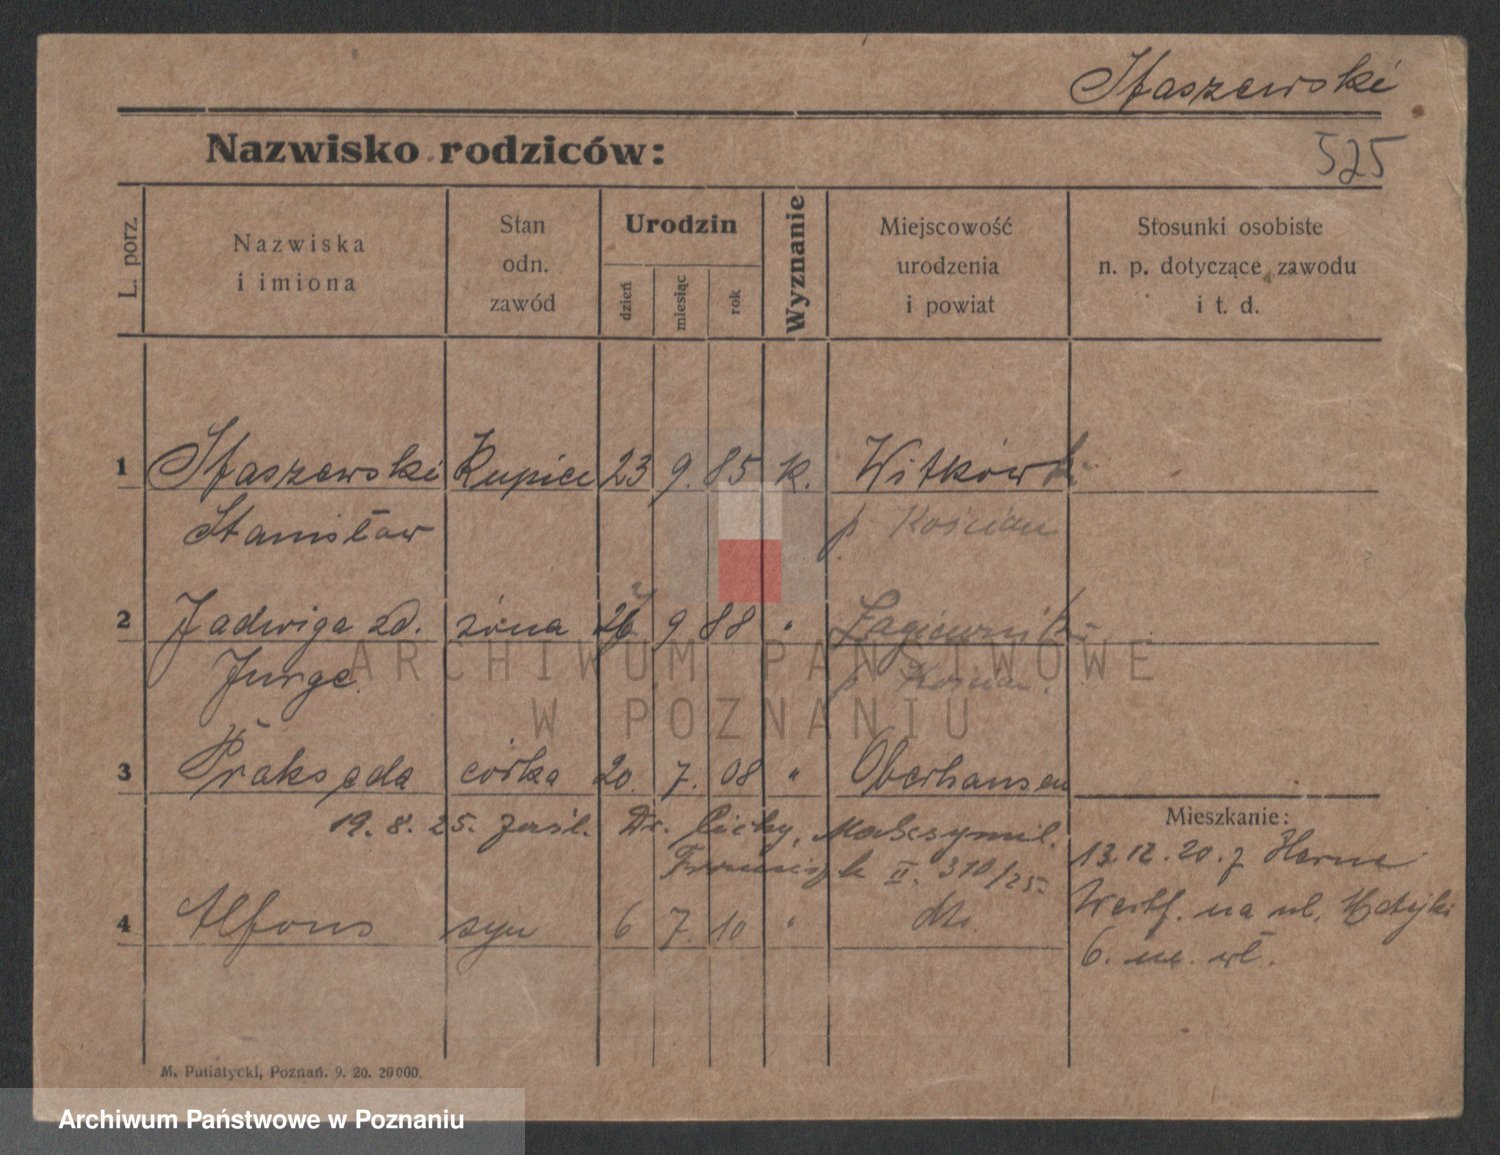 Staszewski
Nazwisko rodziców:
525
L. porz.
Nazwiska
i imiona
Stan
odn.
zawód
Urodzin
dzień
miesiąc
rok
Wyznanie
Miejscowość
urodzenia
i powiat
Stosunki osobiste
n. p. dotyczące zawodu
i t. d.
1 Staszewski Kupiec 23 9. 85 k. Witkówk
Stanisław p. Kościan
2 Jadwiga zd. żona 26 9 88 " Łagiewniki
Jurge p. Kościan.
3 Prakseda córka 20. 7. 08 " Oberhausen
19. 8. 25. zaśl. Dr. Cichy, Maksymil.
II. 310/25.
4 Alfons syn 6 7. 10 "
Mieszkanie:
13.12.20. z Herne
Westf. na ul. Matejki
6. na wł.
M. Putiatycki, Poznań. 9. 20. 20000.
ARCHIWUM PAŃSTWOWE
W POZNANIU
Archiwum Państwowe w Poznaniu